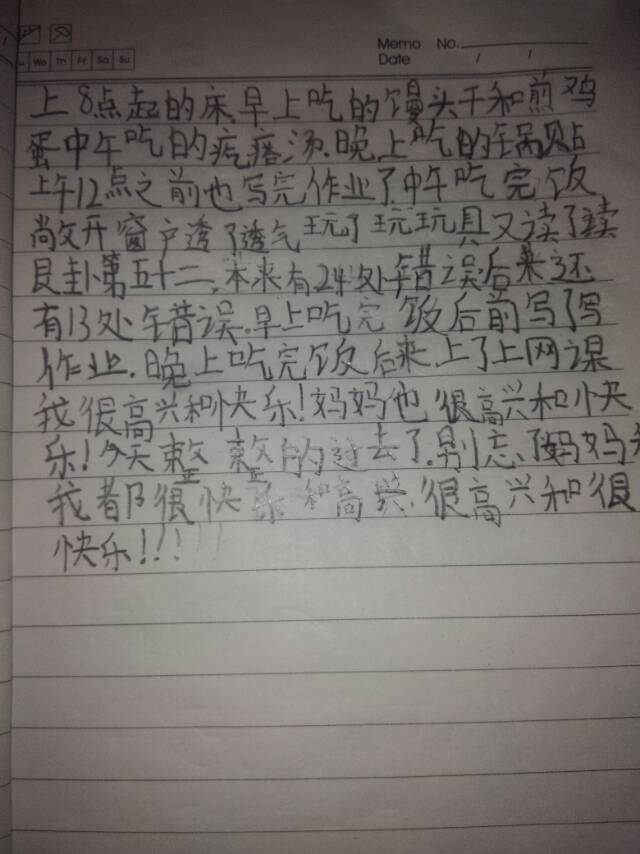 Memo No.
Date / /
We Th Fr Sa Su
上8点起的床.早上吃的馒头干和煎鸡
蛋中午吃的疙瘩汤.晚上吃的锅贴
上午12点之前也写完作业了中午吃完饭
敞开窗户透了透气 玩了玩玩具又读了读
艮卦第五十二,本来有24处错误后来还
有13处错误.早上吃完饭后前写了写
作业.晚上吃完饭后来.上了上网课
我很高兴和快乐!妈妈也很高兴和快
乐!今天整整的过去了.别忘了妈妈
我都很快乐和高兴.很高兴和很
快乐!!!!!